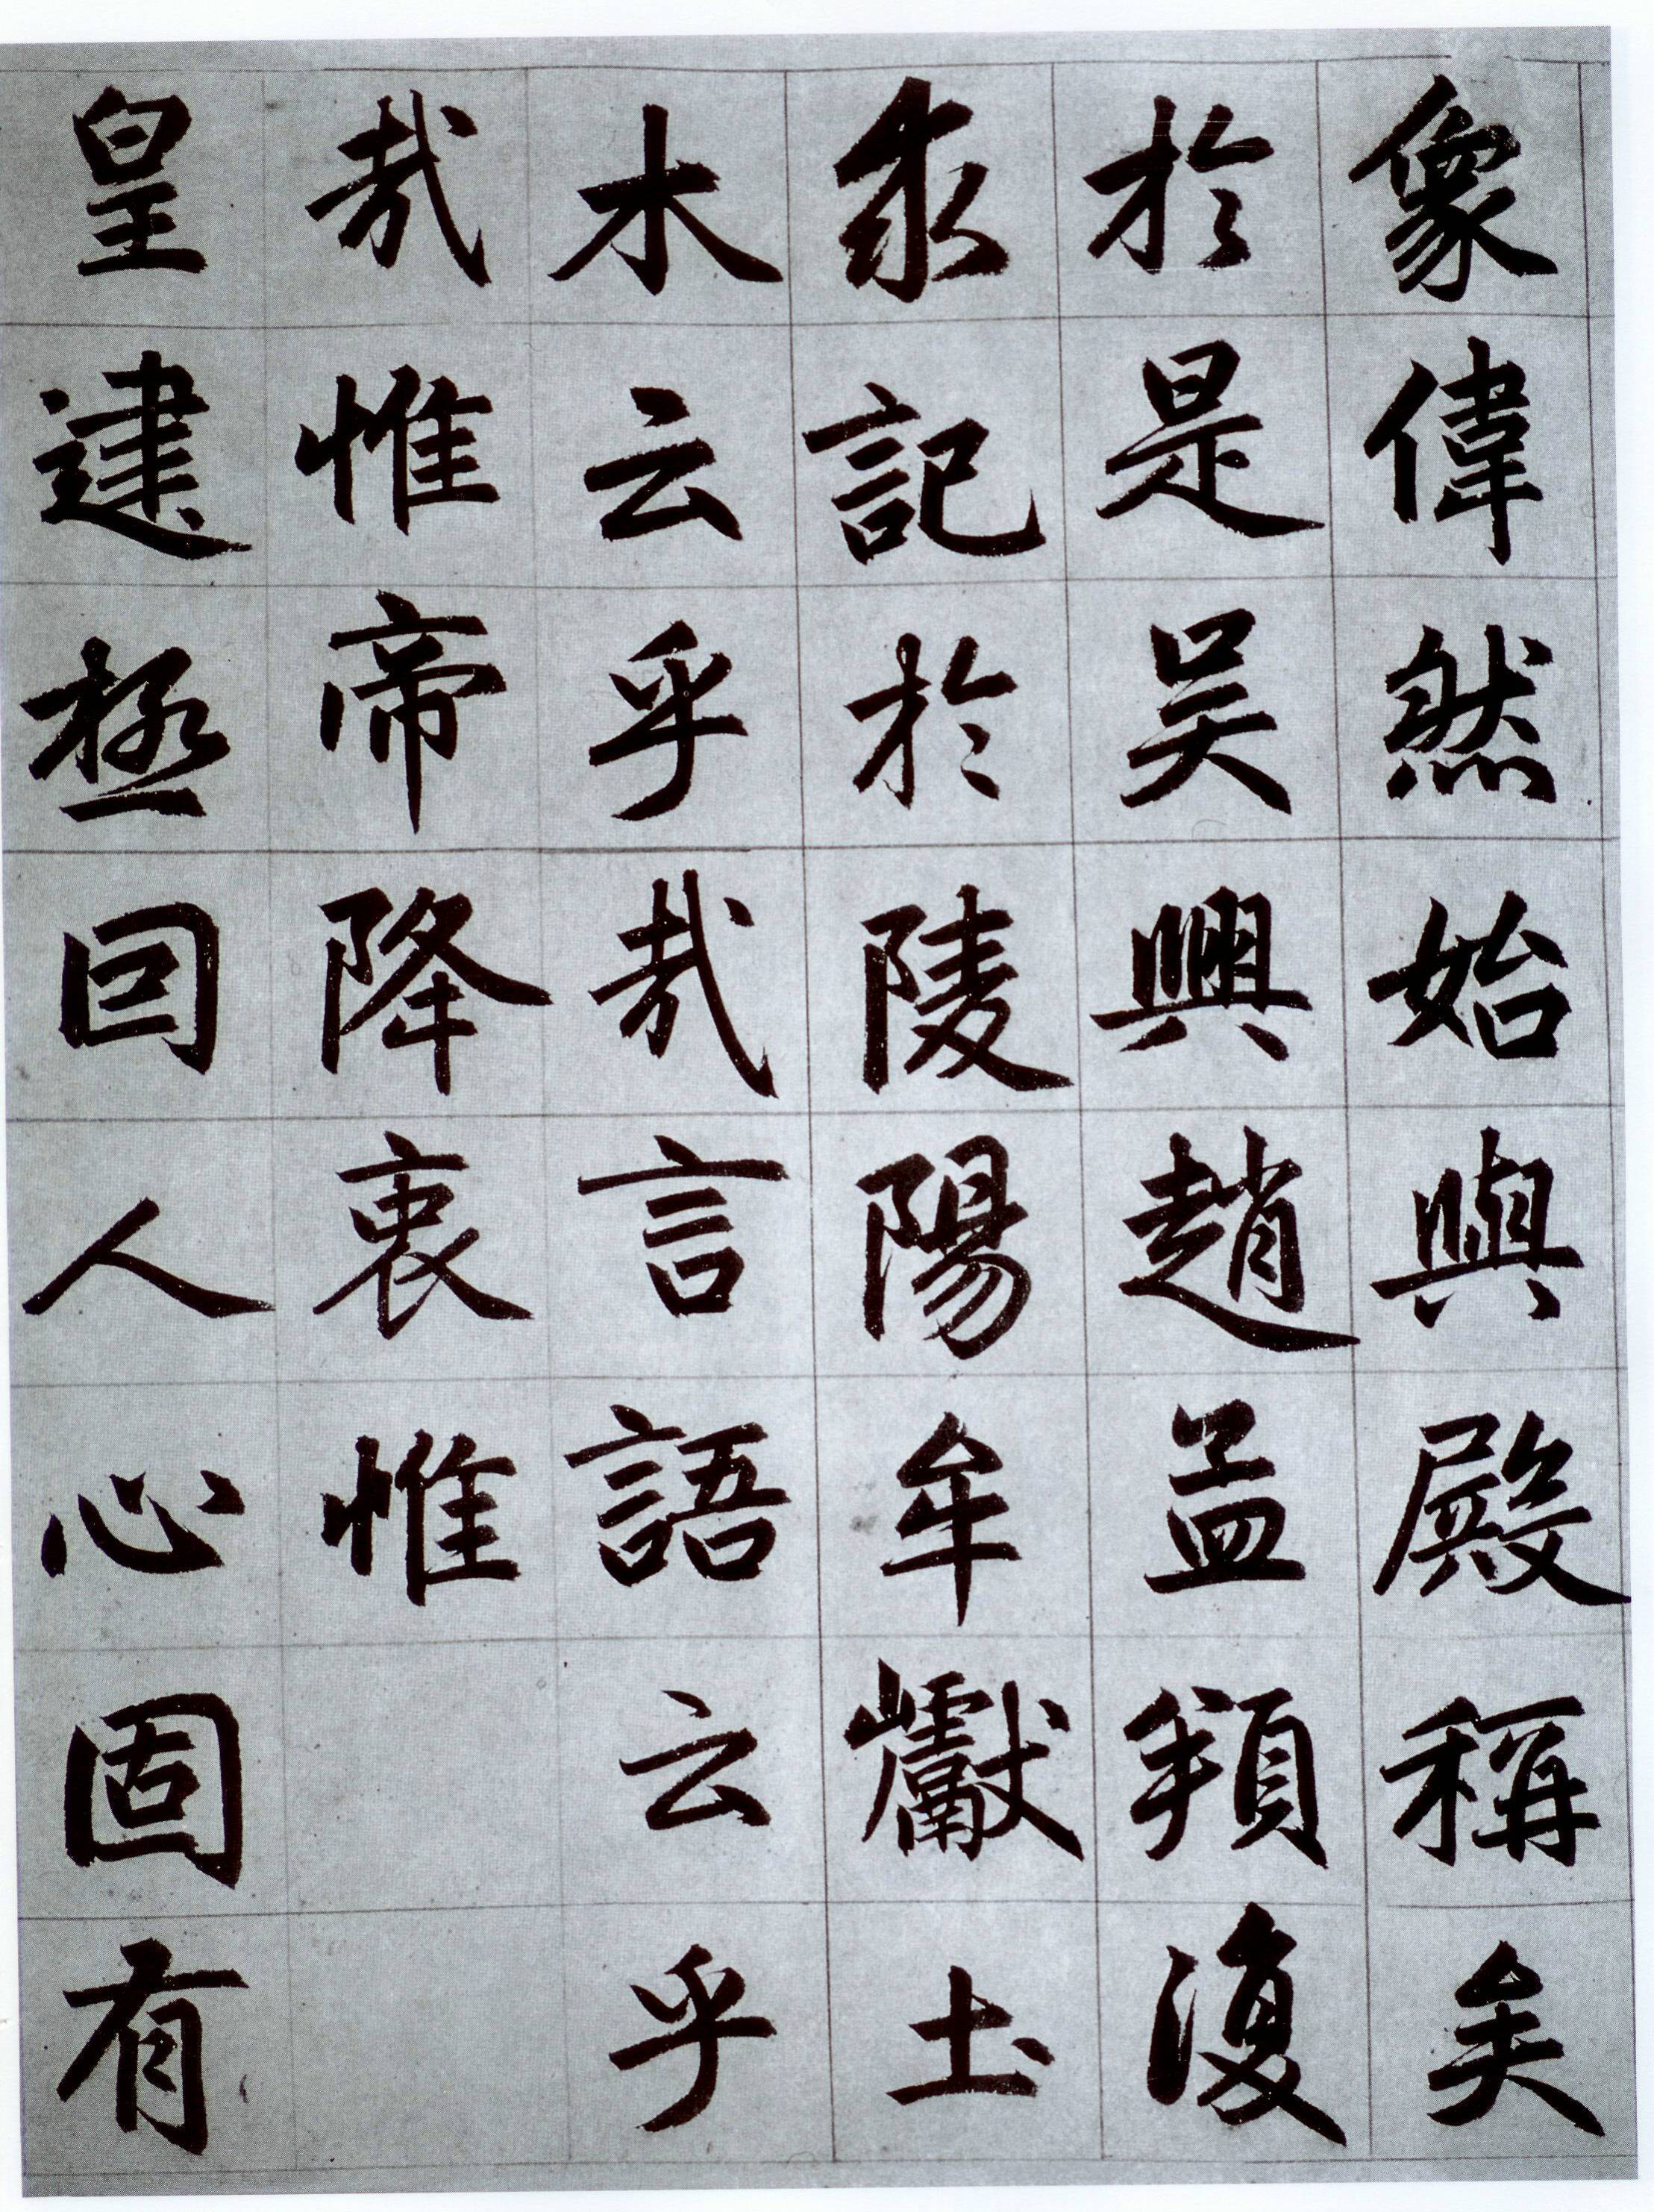 象偉然始與殿稱矣
於是吴興趙孟頫復
求記於陵陽牟巘土
木云乎哉言語云乎
哉惟帝降衷惟
皇建極回人心固有